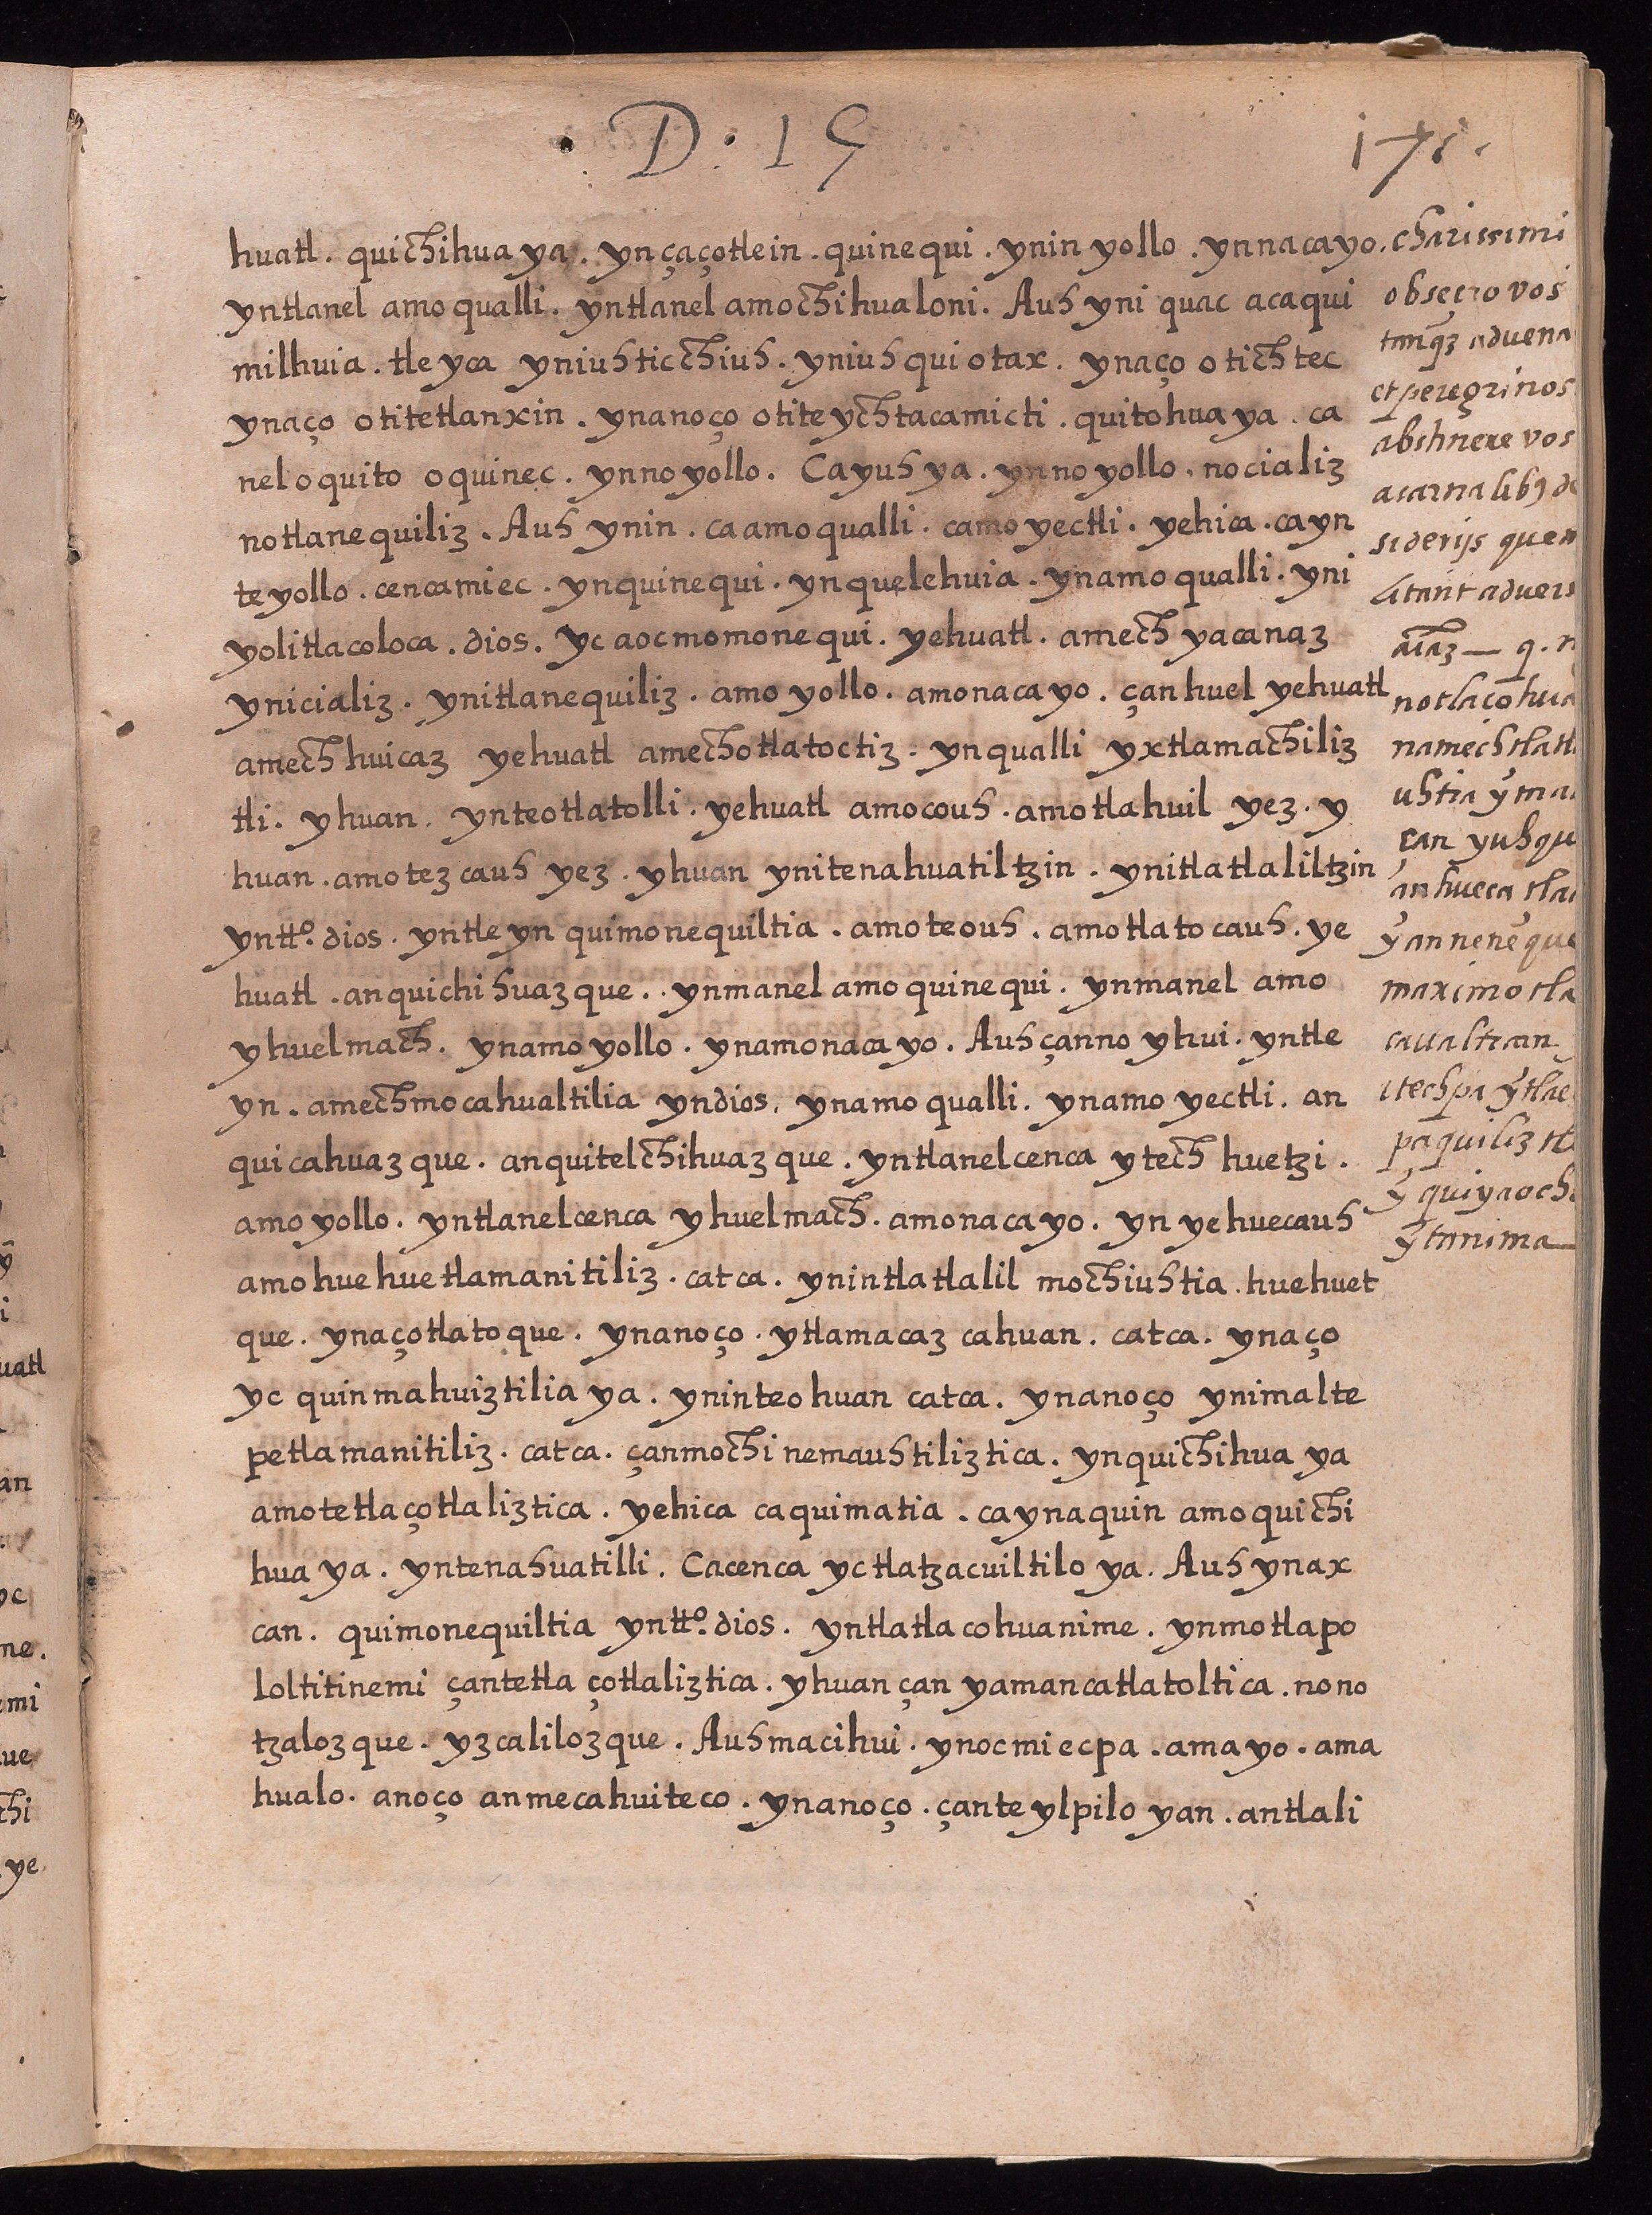 D. 15
171.
huatl. quichihua ya. yn çaçotlein. quinequi. ynin yollo. ynnacayo.
yntlanel amo qualli. yntlanel amochihualoni. Auh yni quac acaqui
milhuia. tle yca yniuh ticchiuh. yniuh qui otax. ynaço otichtec
ynaço otitetlanxin. ynanoço otite ychtacamicti. quitohua ya. ca
nel oquito oquinec. ynno yollo. Cayuh ya. ynno yollo. nocializ
notlanequiliz. Auh ynin. ca amo qualli. camo yectli. yehica. cayn
te yollo. cencamiec. ynquinequi. ynquelehuia. ynamo qualli. yni
yolitlacoloca. dios. yc aocmomonequi. yehuatl. amech yacanaz
ynicializ. ynitlanequiliz. amo yollo. amonacayo. çan huel yehuatl
amech huicaz yehuatl amechotlatoctiz. ynqualli yxtlamachiliz
tli. yhuan. ynteotlatolli. yehuatl amocouh. amotlahuil yez. y
huan. amotezcauh yez. yhuan ynitenahuatiltzin. ynitlatlaliltzin
yntto. dios. yntle yn quimonequiltia. amoteouh. amotlatocauh. ye
huatl. anquichihuazque. ynmanel amo quinequi. ynmanel amo
yhuelmach. ynamo yollo. ynamonacayo. Auh çanno yhui. yntle
yn. amechmocahualtilia yndios. ynamo qualli. ynamo yectli. an
quicahuazque. anquitelchihuazque. yntlanelcenca ytech huetzi.
amo yollo. yntlanelcenca yhuelmach. amonacayo. yn yehuecauh
amohuehuetlamanitiliz. catca. ynintlatlalil mochiuhtia. huehuet
que. ynaçotlatoque. ynanoço. ytlamacazcahuan. catca. ynaço
yc quinmahuiztilia ya. yninteohuan catca. ynanoço ynimalte
petlamanitiliz. catca. çanmochi nemauhtiliztica. ynquichihua ya
amotetlaçotlaliztica. yehica caquimatia. caynaquin amo quichi
hua ya. yntenahuatilli. Cacenca yc tlatzacuiltilo ya. Auh ynax
can. quimonequiltia yntto. dios. yntlatlacohuanime. ynmotlapo
loltitinemi çantetlaçotlaliztica. yhuan çan yamancatlatoltica. nono
tzalozque. yzcalilozque. Auh macihui. ynocmiecpa. amayo. ama
hualo. anoço anmecahuiteco. ynanoço. çante ylpilo yan. antlali
charissimi
obsecro vos
tanqz aduena
et peregrinos
abstinere vos
acarnalibz de
siderijs que m
litant aduers
aiaz — q. n
notlaçohua
namechtlatl
uhtia ỹ ma
çan yuhqu
anhueca tla
ỹ annenẽque
maximotla
caualtican
itechpa ỹtlal
paquiliztl
ỹ quiyaoch
ỹtanima